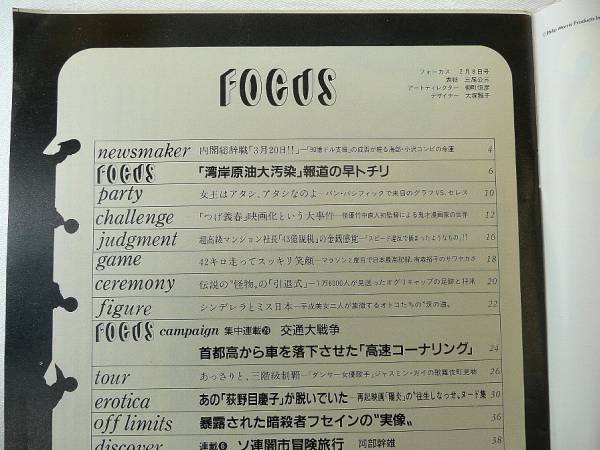 © Philip Morris Products In
FOCUS
フォーカス 2月8日号
表紙 三尾公三
アートディレクター 柳町恒彦
デザイナー 大塚雅子
newsmaker 内閣総辞職「3月20日!!」―「90億ドル支援」の成否が握る海部・小沢コンビの命運 4
FOCUS 「湾岸原油大汚染」報道の早トチリ 6
party 女王はアタシ、アタシなのよ―パン・パシフィックで来日のグラフVS.セレス 10
challenge 「つげ義春」映画化という大事件―怪優竹中直人初監督による鬼才漫画家の世界 12
judgment 超高級マンション社長「43億脱税」の金銭感覚―「スピード違反で捕まったようなもの」!! 16
game 42キロ走ってスッキリ笑顔―マラソン2度目で日本最高記録、有森裕子のサワヤカさ 18
ceremony 伝説の“怪物”の「引退式」―1万6000人が見送ったオグリキャップの足跡と将来 20
figure シンデレラとミス日本―平成美女二人が象徴するオトコたちの“涙の海” 22
FOCUS campaign 集中連載㉖ 交通大戦争
首都高から車を落下させた「高速コーナリング」 24
tour あっさりと、三階級制覇―「ダンサー女優歌手」ジャスミン・ガイの歌舞伎町見物 26
erotica あの「荻野目慶子」が脱いでいた―再起映画「陽炎」の“往生しなっせ、ヌード集 30
off limits 暴露された暗殺者フセインの“実像” 36
discover 連載⑥ ソ連闇市冒険旅行 阿部幹雄 38